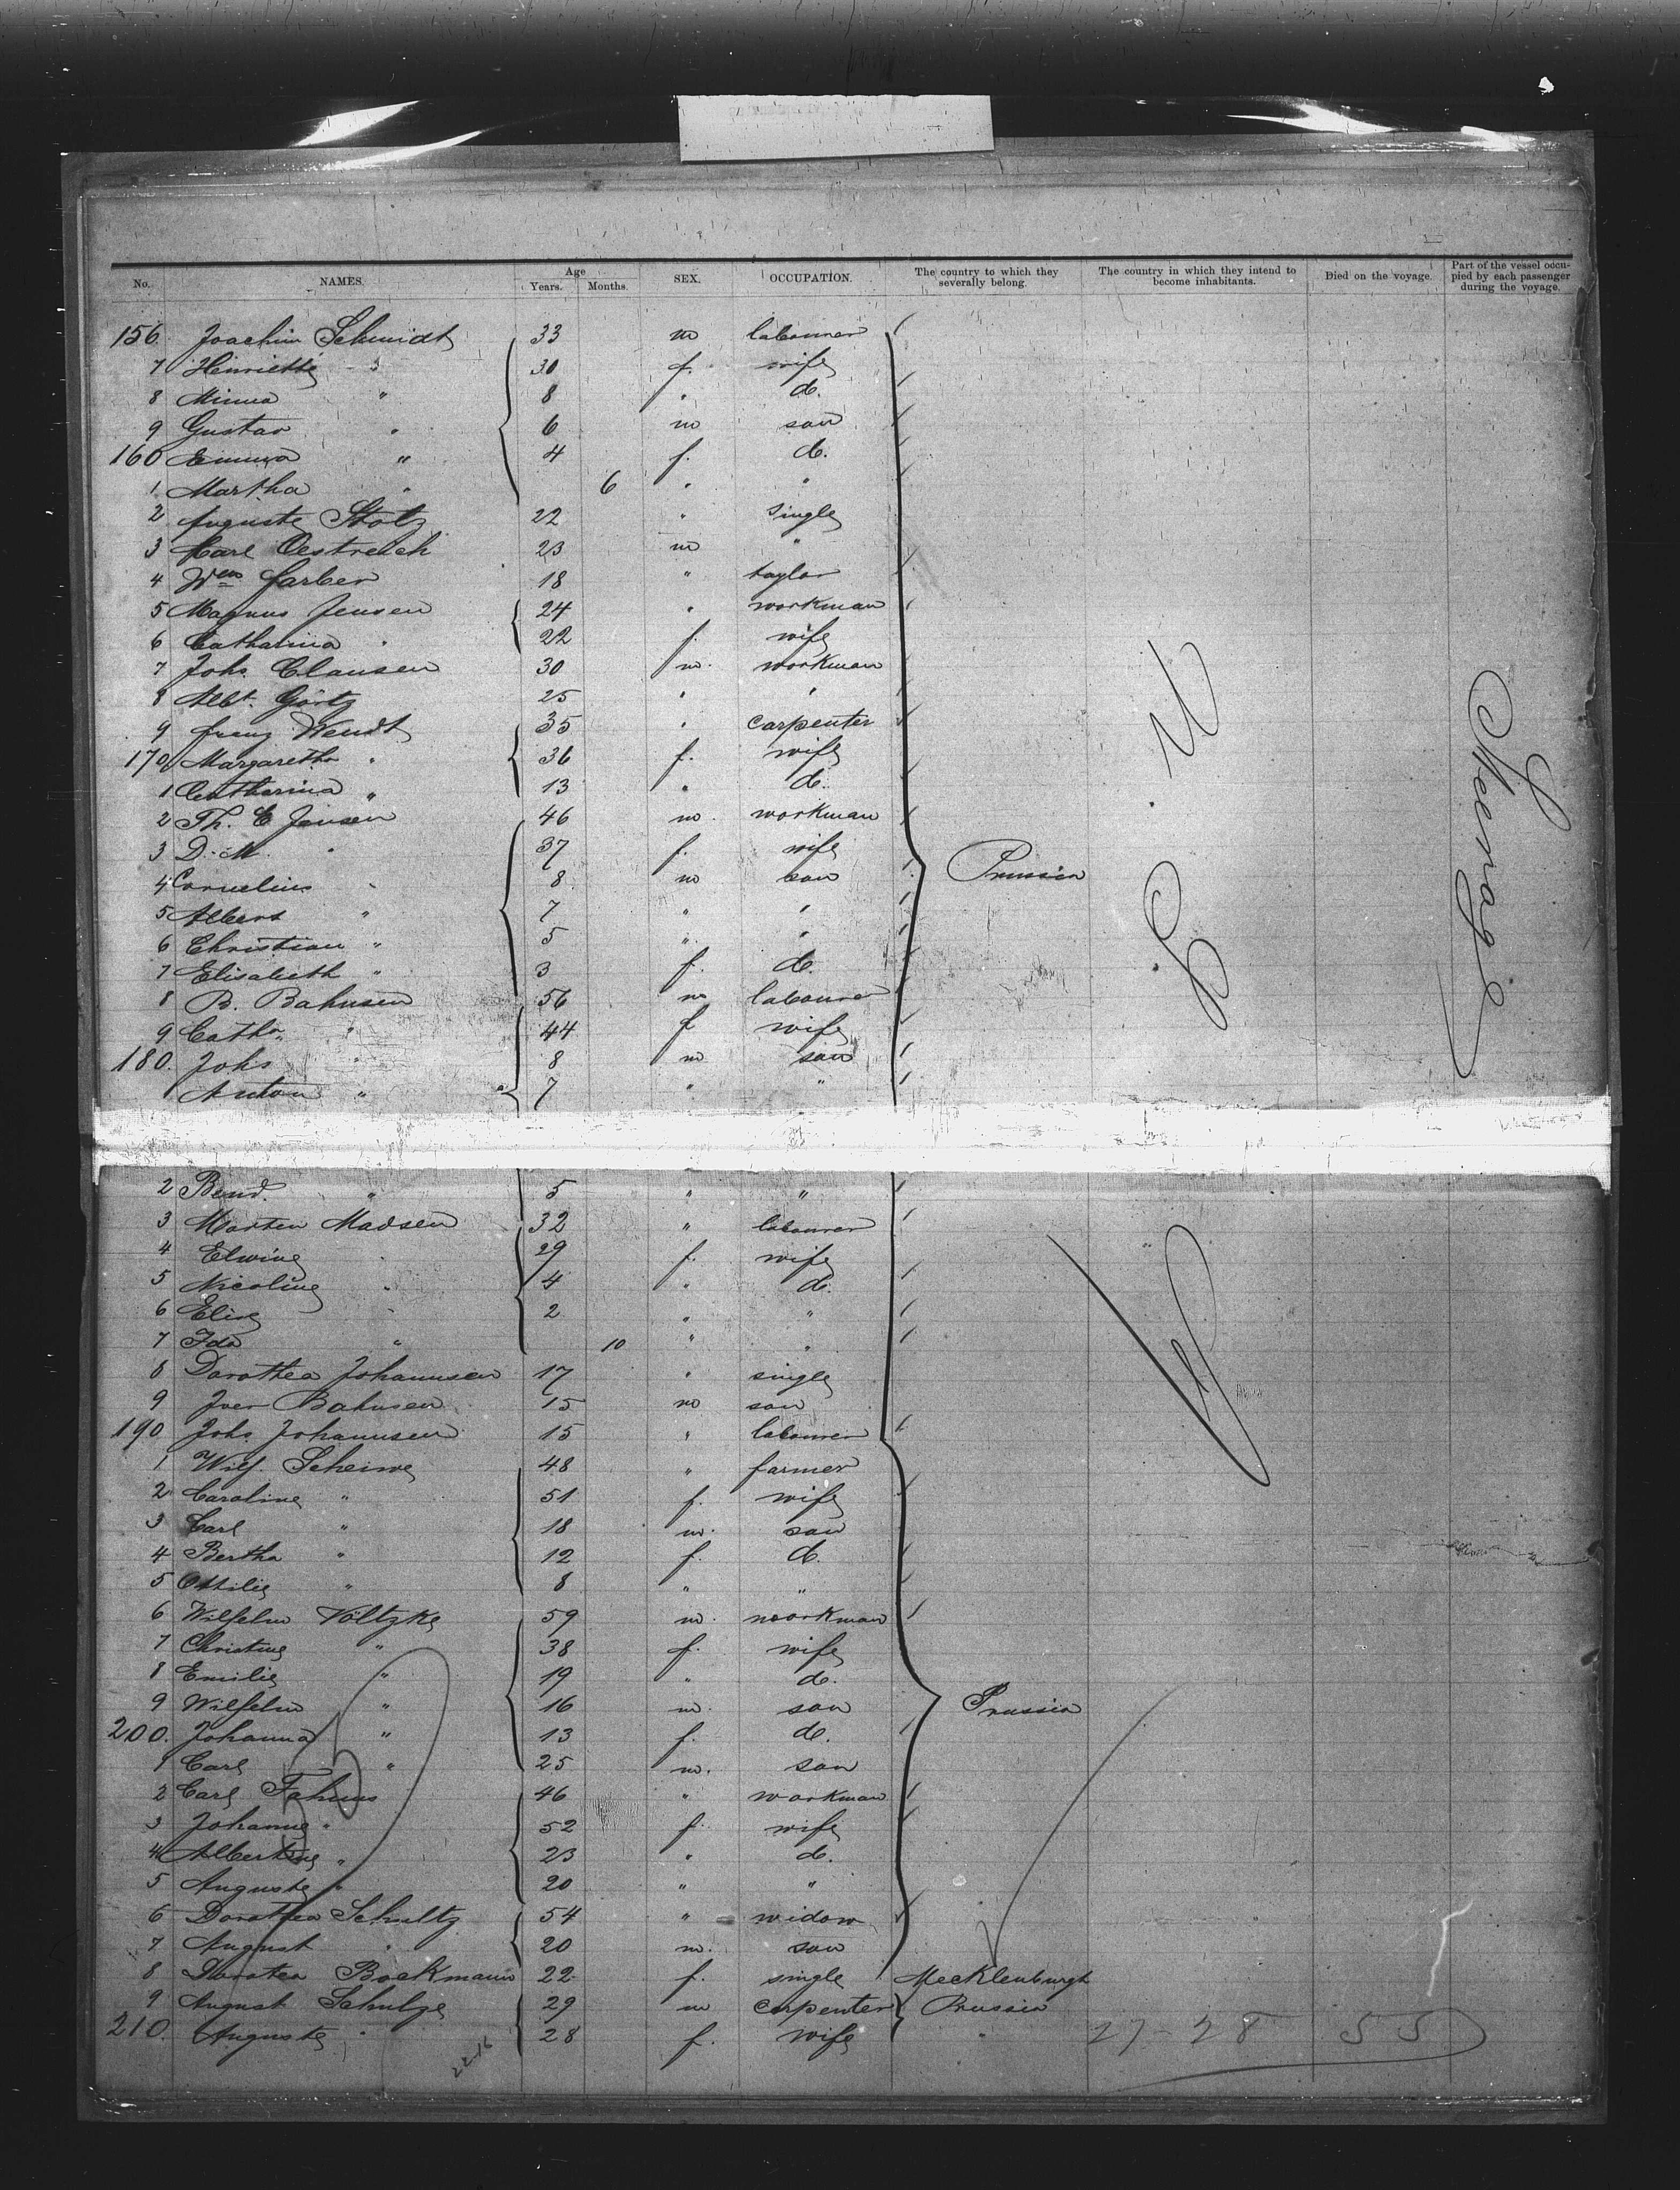 No. NAMES. Age Years. Months. SEX. OCCUPATION. The country to which they severally belong. The country in which they intend to become inhabitants. Died on the voyage. Part of the vessel occupied by each passenger during the voyage.
156. Joachim Schmidt 33 m labourer
7 Henriette " 30 f. wife
8 Minna " 8 " d.
9 Gustav " 6 m son
160 Emma " 4 f. d.
1 Martha " 6 " "
2 Auguste Stolz 22 " single
3 Carl Oestreich 23 m "
4 Wm Farber 18 " taylor
5 Magnus Jensen 24 " workman
6 Catharina " 22 f. wife
7 Johs. Clausen 30 m. workman
8 Albt. Görtz 25 " "
9 Franz Wendt 35 " carpenter
170 Margaretha " 36 f. wife
1 Catharina " 13 " d.
2 Th. C Jensen 46 m. workman
3 D. M. " 37 f. wife Prussia
4 Cornelius " 8 m son
5 Albert " 7 " "
6 Christian " 5 " "
7 Elisabeth " 3 f. d.
8 B. Bahnsen 56 m labourer
9 Cath. " 44 f wife
180. Johs " 8 m son
1 Anton " 7 " "
U. S. A.
Steerage
2 Bend. " 5 " "
3 Marten Madsen 32 " labourer
4 Elwine " 29 f. wife
5 Nicoline " 4 " d.
6 Elise " 2 " "
7 Ida " 10 " "
8 Dorothea Johannsen 17 " single
9 Iver Bahnsen 15 m son
190 Johs. Johannsen 15 " labourer
1 Wilh. Scheiwe 48 " farmer
2 Caroline " 51 f. wife
3 Carl " 18 m. son
4 Bertha " 12 f. d.
5 Ottilie " 8 " "
6 Wilhelm Völtzke 59 m. workman
7 Christine " 38 f. wife
8 Emilie " 19 " d.
9 Wilhelm " 16 m. son Prussia
200. Johanna " 13 f. d.
1 Carl " 25 m. son
2 Carl Fahms 46 " workman
3 Johanne " 52 f. wife
4 Albertine " 23 " d.
5 Auguste " 20 " "
6 Dorothea Schultz 54 " widow
7 August " 20 m. son
8 Dorotea Bockmann 22 f. single Mecklenburgh
9 August Schulze 29 m carpenter Prussia
210. Auguste " 28 f. wife " 27-28 55
22-16